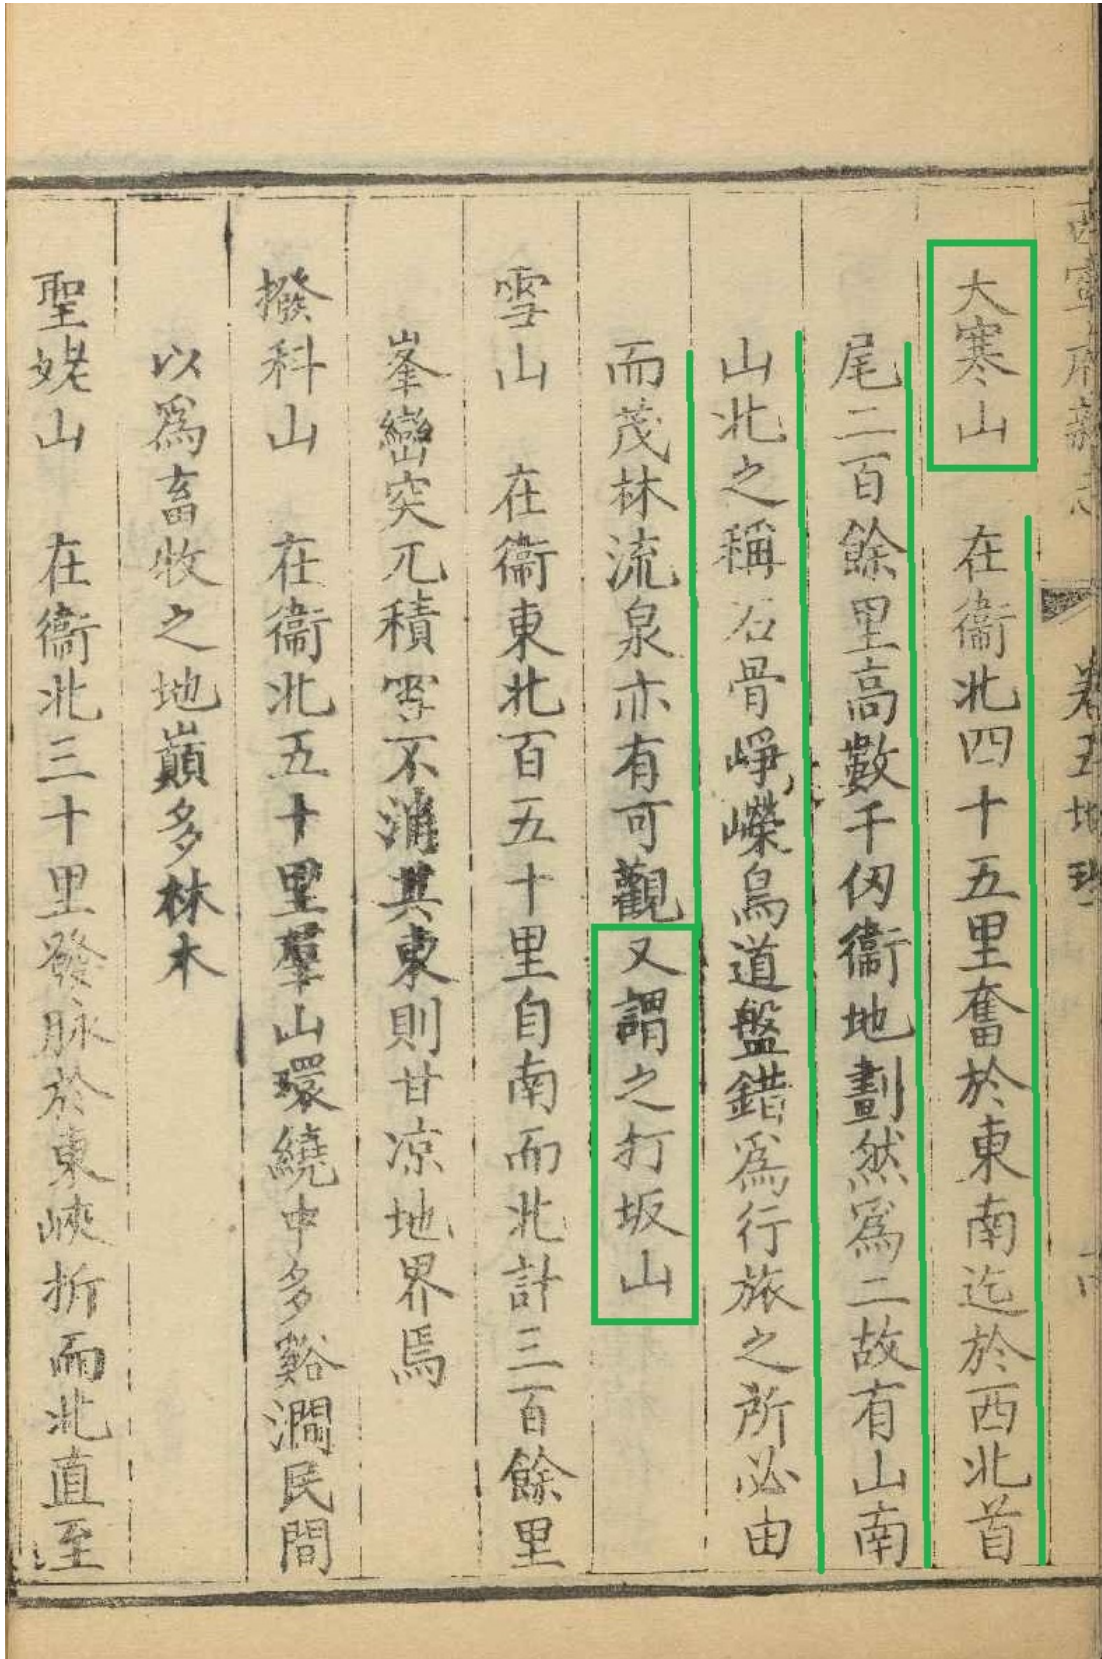 大寒山　在衞北四十五里奮於東南迄於西北首
尾二百餘里高數千仞衞地劃然爲二故有山南
山北之稱石骨崢嶸鳥道盤錯爲行旅之所必由
而茂林流泉亦有可觀又謂之打坂山
雪山　在衞東北百五十里自南而北計三百餘里
峯巒突兀積雪不消其東則甘凉地界焉
撥科山　在衞北五十里羣山環繞中多谿澗民間
以爲畜牧之地巔多林木
聖姥山　在衞北三十里發脉於東峽折而北直至